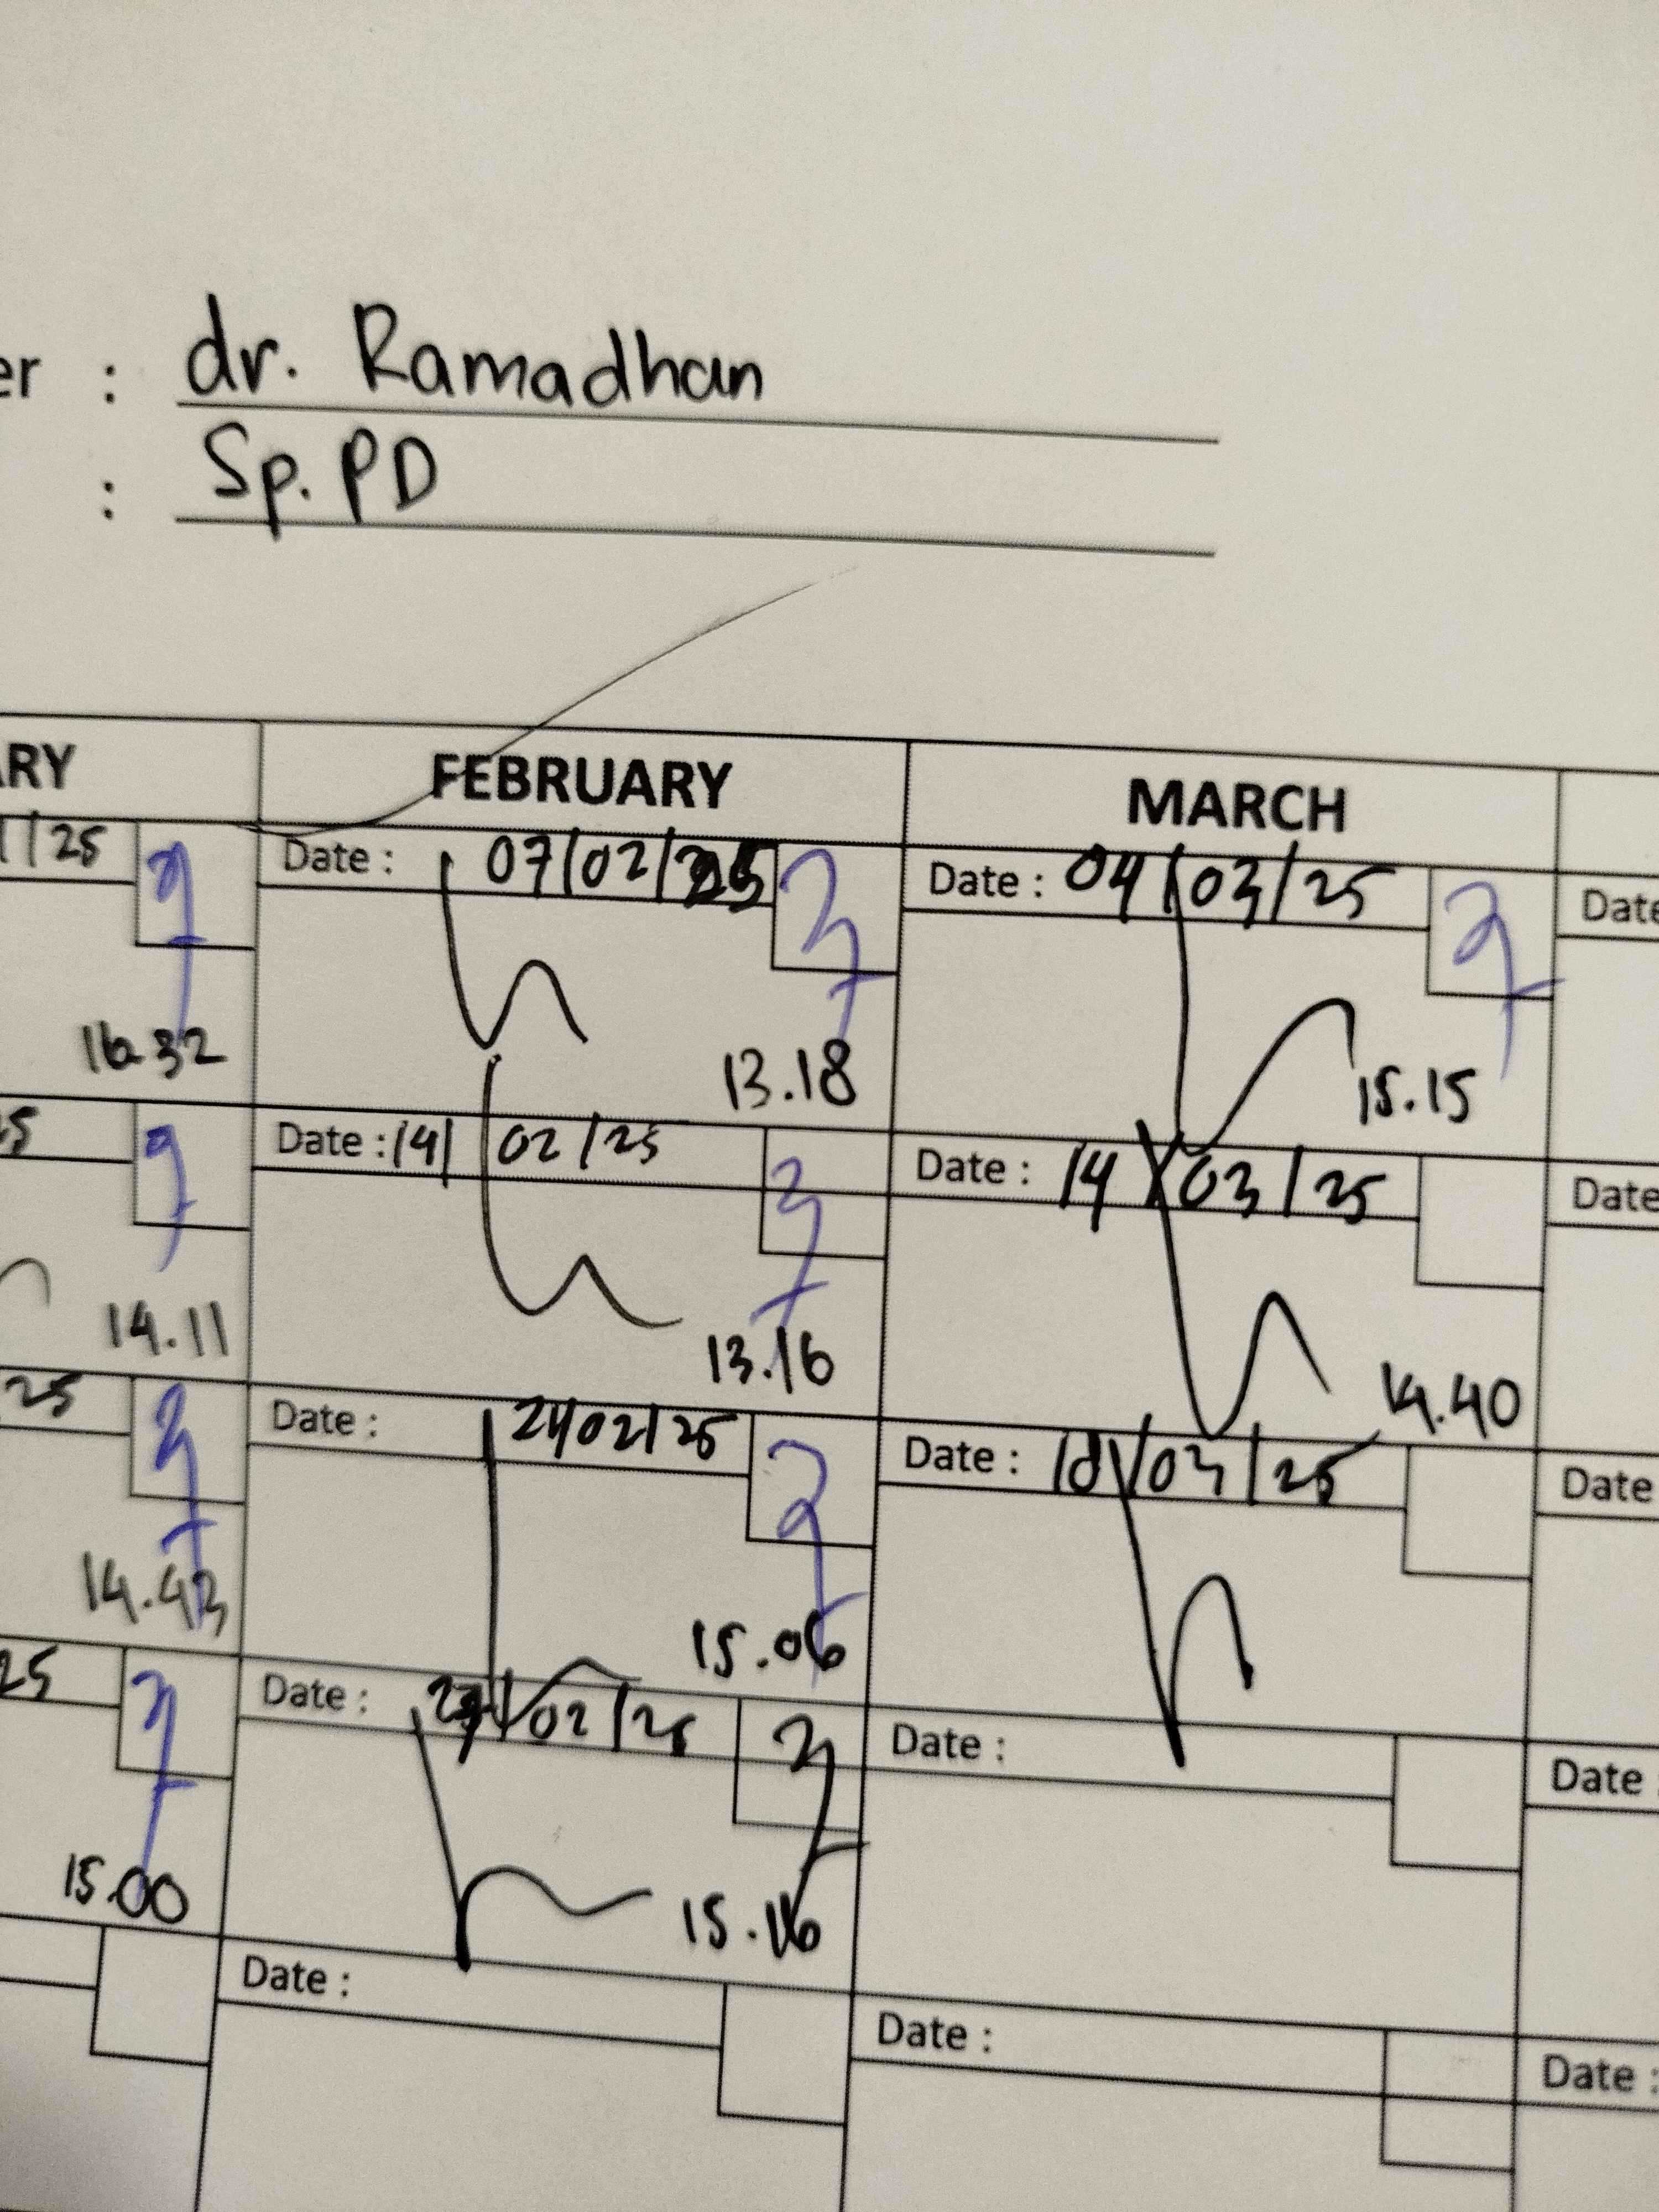 er : dr. Ramadhan
: Sp. PD
ARY FEBRUARY MARCH
1/25 Date : 07/02/25 Date : 04/03/25 Date
16.32 13.18 15.15
Date : 14/02/25 Date : 14/03/25 Date
14.11 13.16 14.40
25 Date : 24/02/25 Date : 18/03/25 Date
14.43 15.06
25 Date : /02/25 Date : Date :
15.00 15.16
Date : Date : Date :